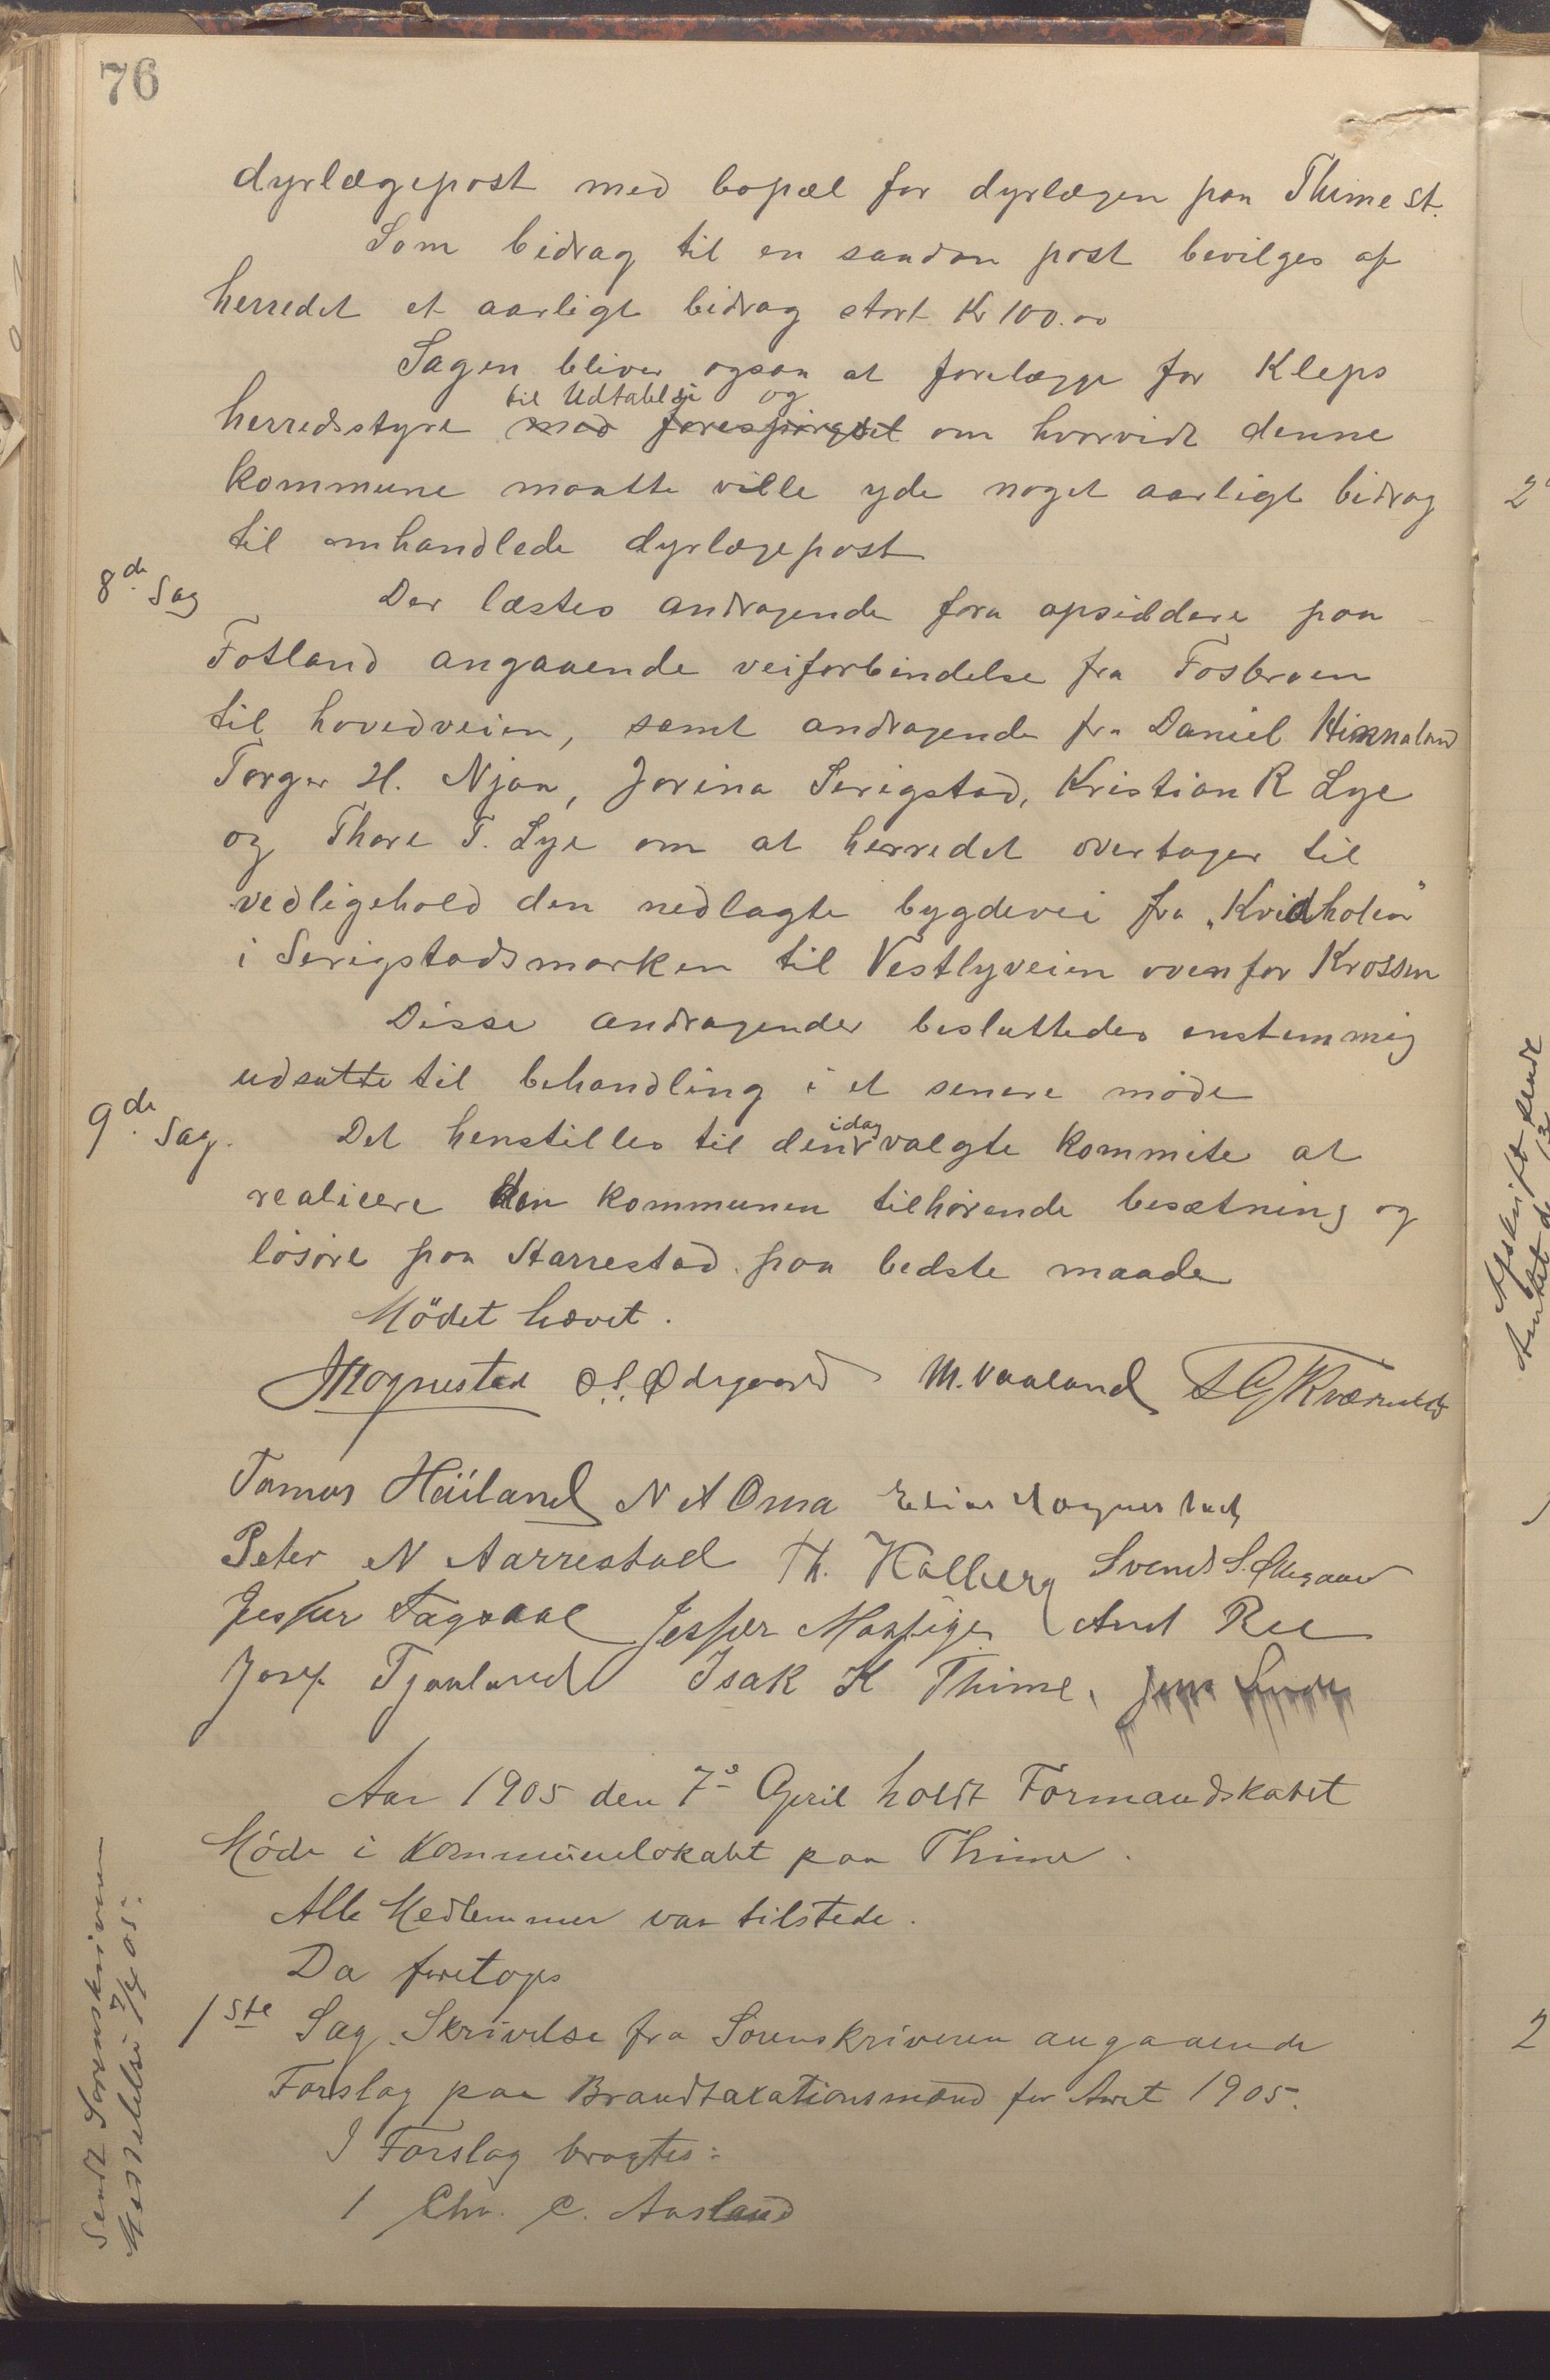 76
dyrlægepost med bopæl for dyrlægen paa Thime st.
Som bidrag til en saadan post bevilges af
herredet et aarligt bidrag stort Kr 100.00
Sagen bliver ogsaa at forelægge for Kleps
til Udtalelse og
herredsstyre med forespørgsel om hvorvidt denne
kommune maatte ville yde noget aarligt bidrag
til omhandlede dyrlægepost
8de Sag
Der læstes andragende fra opsiddere paa
Fotland angaaende veiforbindelse fra Fosbroen
til hovedveien, samt andragende fra Daniel Hinnaland
Torger H. Njaa, Jorina Serigstad, Kristian R Lye
og Thore T. Lye om at herredet overtager til
vedligehold den nedlagte bygdevei fra „Kvidholen"
i Serigstadsmarken til Vestlyveien ovenfor Krossen
Disse andragender besluttedes enstemmig
udsatte til behandling i et senere møde
9de Sag.
idag
Det henstilles til den valgte kommite at
realicere den kommunen tilhørende besætning og
løsøre paa Harrestad paa bedste maade
Mödet hævet.
Mognestad O. S. Ødegaard M. Vaaland S G Kværneland
Tomas Håiland N A Oma Elias Mognestad
Peter N Aarrestad Th. Kalberg Svend S. Ødegaard
Jesper Fagvaal Jesper Mossige Arnt Ree
Josef Tjaaland Isak K Thime, Jens
Aar 1905 den 7de April holdt Formandskabet
Møde i Kommunelokalet paa Thime.
Alle Medlemmer var tilstede.
Da foretoges
1ste Sag. Skrivelse fra Sorenskriveren angaaende
Forslag paa Brandtaxationsmænd for Aaret 1905.
I Forslag bragtes:
1 Chr. C. Aasland
Sendt Sorenskriveren
Meddelelse 7/4 05.
Afskrift sendt
Amtet d
2
2